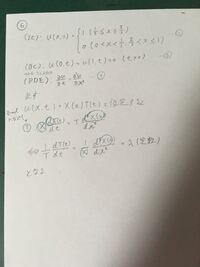 ⑥
(IC): u(x,0) = { 1 (1/3 ≤ x ≤ 2/3)
0 (0 < x < 1/3, 2/3 < x < 1)
(BC): u(0,t) = u(1,t) = 0 (t > 0)
(PDE): ∂u/∂t = ∂²u/∂x²
u(x,t) = X(x)T(t)
X dT(t)/dt = T d²X(x)/dx²
⇔ 1/T dT(t)/dt = 1/X d²X(x)/dx² = λ (定数)
となる